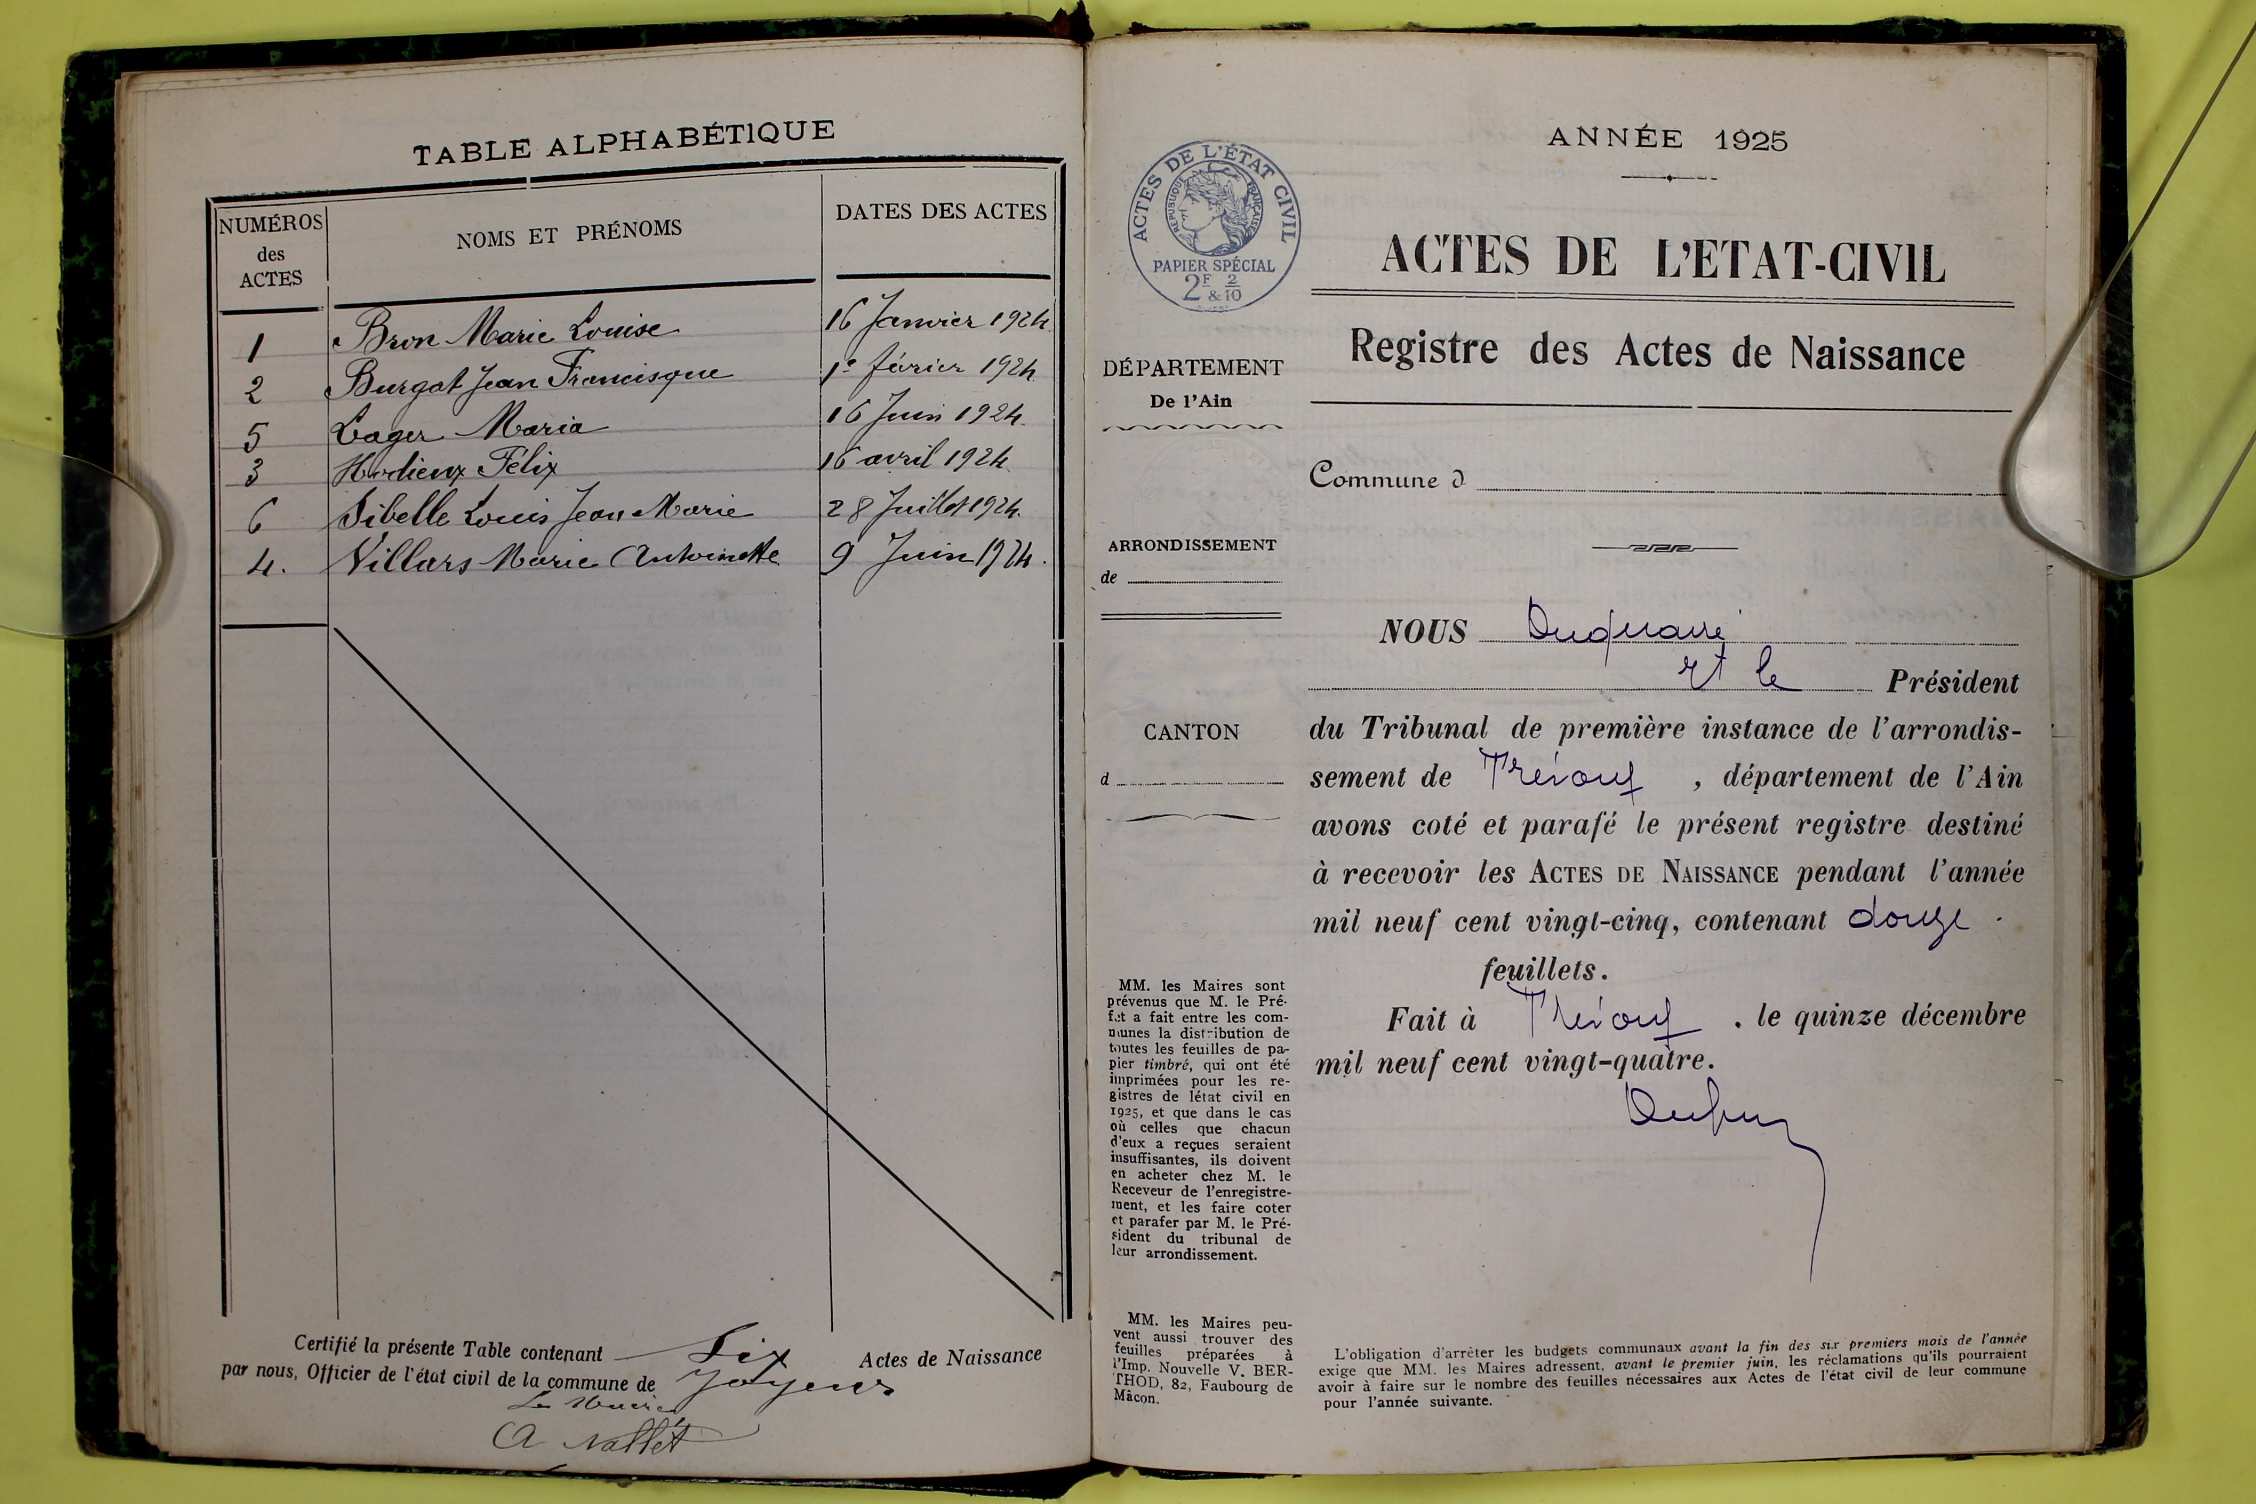 TABLE ALPHABÉTIQUE
NUMÉROS
des
ACTES
NOMS ET PRÉNOMS
DATES DES ACTES
1 Bron Marie Louise 16 Janvier 1924
2 Burgat Jean Francisque 1e février 1924
5 Lager Maria 16 Juin 1924.
3 Hodieux Félix 16 avril 1924
6 Sibelle Louis Jean Marie 28 Juillet 1924.
4. Villars Marie Antoinette 9 Juin 1924.
Certifié la présente Table contenant Six Actes de Naissance
par nous, Officier de l'état civil de la commune de Joyeux
Le Maire
A Nallet
ANNÉE 1925
ACTES DE L'ÉTAT CIVIL
RÉPUBLIQUE FRANÇAISE
PAPIER SPÉCIAL
2F & 2/10
ACTES DE L'ETAT-CIVIL
Registre des Actes de Naissance
DÉPARTEMENT
De l'Ain
Commune d
ARRONDISSEMENT
de
CANTON
d
MM. les Maires sont
prévenus que M. le Pré-
fet a fait entre les com-
munes la distribution de
toutes les feuilles de pa-
pier timbré, qui ont été
imprimées pour les re-
gistres de létat civil en
1925, et que dans le cas
où celles que chacun
d'eux a reçues seraient
insuffisantes, ils doivent
en acheter chez M. le
Receveur de l'enregistre-
ment, et les faire coter
et parafer par M. le Pré-
sident du tribunal de
leur arrondissement.
MM. les Maires peu-
vent aussi trouver des
feuilles préparées à
l'Imp. Nouvelle V. BER-
THOD, 82, Faubourg de
Mâcon.
NOUS
le Président
du Tribunal de première instance de l'arrondis-
sement de Trévoux, département de l'Ain
avons coté et parafé le présent registre destiné
à recevoir les ACTES DE NAISSANCE pendant l'année
mil neuf cent vingt-cinq, contenant douze
feuillets.
Fait à Trévoux, le quinze décembre
mil neuf cent vingt-quatre.
L'obligation d'arrêter les budgets communaux avant la fin des six premiers mois de l'année
exige que MM. les Maires adressent, avant le premier juin, les réclamations qu'ils pourraient
avoir à faire sur le nombre des feuilles nécessaires aux Actes de l'état civil de leur commune
pour l'année suivante.